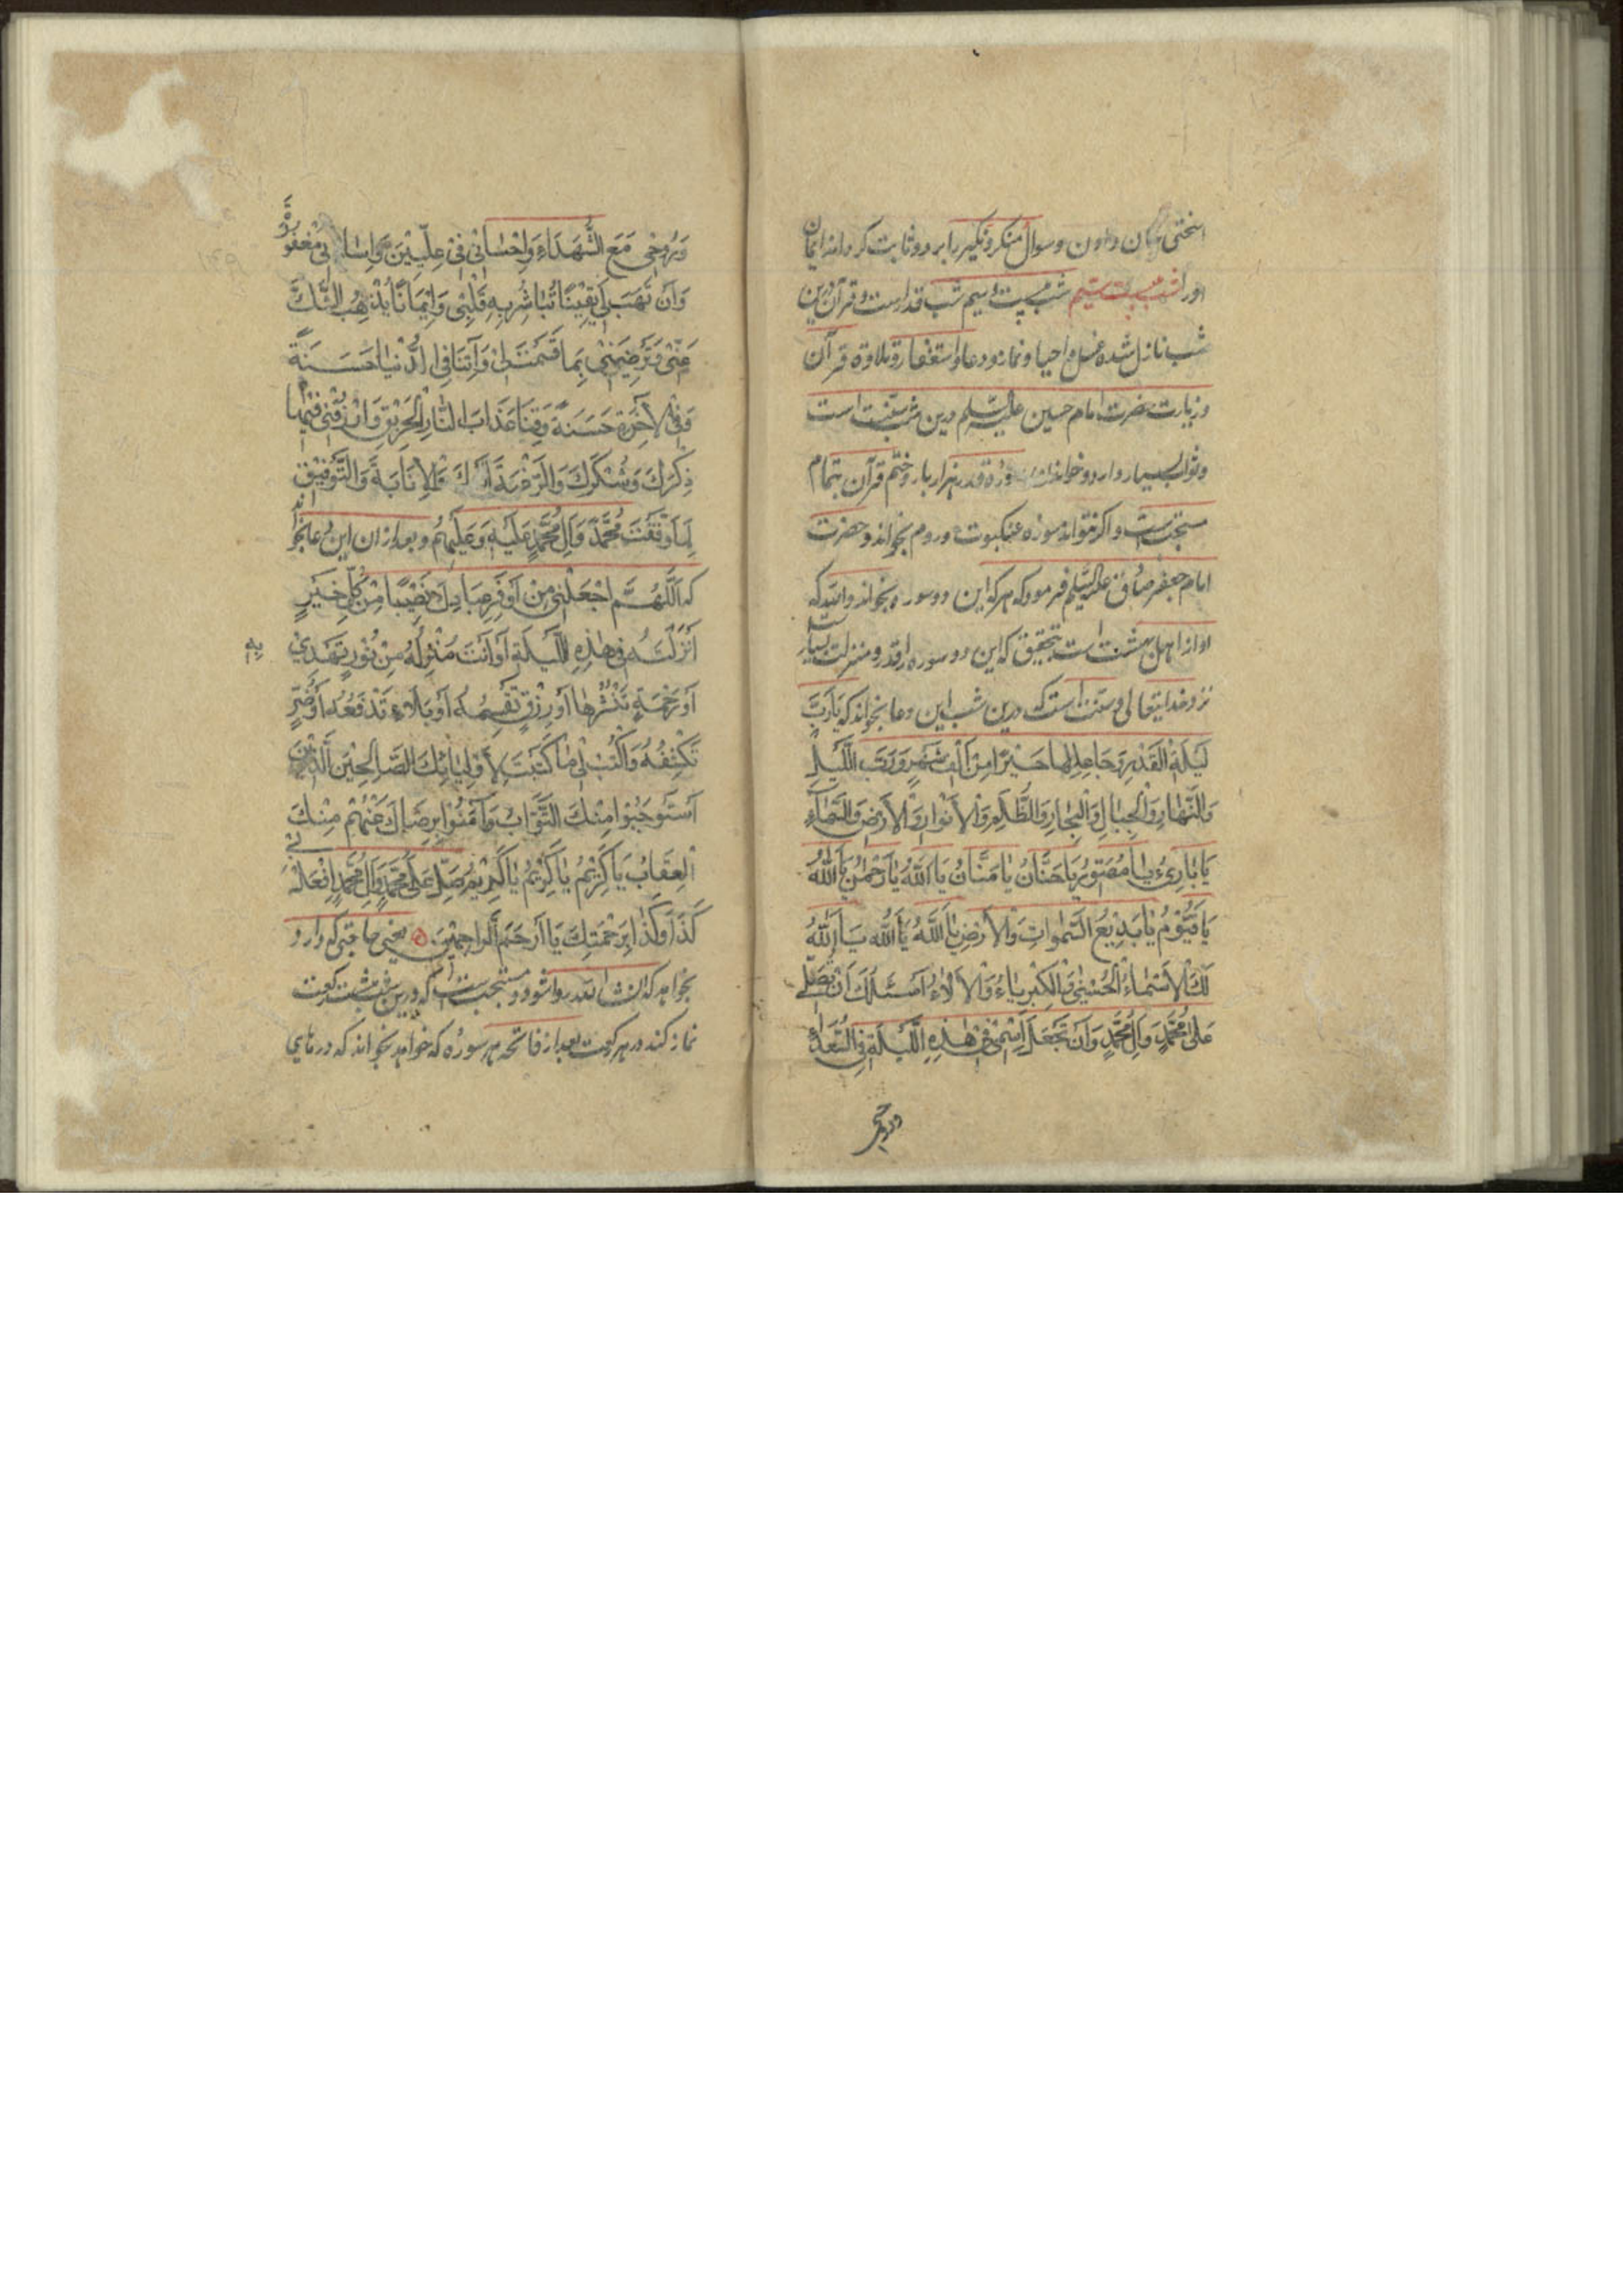 سختی جان دادن و سوال منکر و نکیر را بر دو ثابت کرداند ایمان
اورا شب بیست سیم شب بیست و سیم شب قدر است و قرآن درین
شب نازل شده غسل و احیا و نماز و دعا و استغفار و تلاوة قرآن
و زیارت حضرت امام حسین علیه السلم درین شب سنت است
و ثواب بسیار دارد و خواندن سورۀ قدر هزار بار و ختم قرآن بتمام
مستحب است و اکر نتواند سوره عنکبوت و روم بخواند و حضرت
امام جعفر صادق علیه السلم فرمود که هر که این دو سوره بخواند والله که
او از اهل بهشت است بتحقیق که این دو سوره را قدر و منزلت بسیار
نزد خدایتعالی و سنت است که درین شب این دعا بخواند که یَا رَبَّ
لَیْلَةِ الْقَدْرِ وَجَاعِلِهَا خَیْرًا مِنْ اَلْفِ شَهْرٍ وَرَبَّ اللَّیْلِ
وَالنَّهَارِ وَالْجِبَالِ وَالْبِحَارِ وَالظُّلَمِ وَالْاَنْوَارِ وَالْاَرْضِ وَالسَّمَاءِ
یَا بَارِئُ یَا مُصَوِّرُ یَا حَنَّانُ یَا مَنَّانُ یَا اَللّٰهُ یَا رَحْمٰنُ یَا اَللّٰهُ
یَا قَیُّوْمُ یَا بَدِیْعَ السَّمٰوَاتِ وَالْاَرْضِ یَا اَللّٰهُ یَا اَللّٰهُ یَا اَللّٰهُ
لَكَ الْاَسْمَاءُ الْحُسْنٰی وَالْکِبْرِیَاءُ وَالْاٰلَاءُ اَسْئَلُكَ اَنْ تُصَلِّی
عَلٰی مُحَمَّدٍ وَاٰلِ مُحَمَّدٍ وَاَنْ تَجْعَلَ اِسْمِی فِی هٰذِهِ اللَّیْلَةِ فِی السُّعَدَاءِ
وروحی
وَرُوحِی مَعَ الشُّهَدَاءِ وَاِحْسَانِی فِی عِلِّیِّیْنَ وَاِسَاءَتِی مَغْفُوْرَةً
وَاَنْ تَهَبَ لِی یَقِیْنًا تُبَاشِرُ بِهِ قَلْبِی وَاِیْمَانًا یُذْهِبُ الشَّكَّ
عَنِّی وَتُرْضِیَنِی بِمَا قَسَمْتَ لِی وَاٰتِنَا فِی الدُّنْیَا حَسَنَةً
وَفِی الْاٰخِرَةِ حَسَنَةً وَقِنَا عَذَابَ النَّارِ الْحَرِیْقِ وَارْزُقْنِی فِیْهَا
ذِکْرَكَ وَشُکْرَكَ وَالرَّغْبَةَ اِلَیْكَ وَالْاِنَابَةَ وَالتَّوْفِیْقَ
لِمَا وَفَّقْتَ مُحَمَّدً وَاٰلَ مُحَمَّدٍ عَلَیْهِ وَعَلَیْهِمْ و بعد ازان این دعا بخواند
که اَللّٰهُمَّ اجْعَلْنِی مِنْ اَوْفَرِ عِبَادِكَ نَصِیْبًا مِنْ کُلِّ خَیْرٍ
اَنْزَلْتَهُ فِی هٰذِهِ اللَّیْلَةِ اَوْ اَنْتَ مُنْزِلُهُ مِنْ نُوْرٍ تَهْدِی به
اَوْ رَحْمَةٍ تَنْشُرُهَا اَوْ رِزْقٍ تَقْسِمُهُ اَوْ بَلَاءٍ تَدْفَعُهُ اَوْ ضُرٍّ
تَکْشِفُهُ وَاکْتُبْ لِی مَا کَتَبْتَ لِاَوْلِیَائِكَ الصَّالِحِیْنَ الَّذِیْنَ
اَسْتَوْجَبُوْا مِنْكَ الثَّوَابَ وَاٰمَنُوْا بِرِضَاكَ عَنْهُمْ مِنْكَ
الْعِقَابَ یَا کَرِیْمُ یَا کَرِیْمُ یَا کَرِیْمُ صَلِّ عَلٰی مُحَمَّدٍ وَاٰلِ مُحَمَّدٍ اِفْعَلْ بی
کَذَا وَکَذَا بِرَحْمَتِكَ یَا اَرْحَمَ الرَّاحِمِیْنَ یعنی حاجتی که دارد
بخواهد که ان شا الله روا شود و مستحب است که درین شب شست رکعت
نماز کند در هر رکعت بعد از فاتحه هر سوره که خواهد بخواند که در